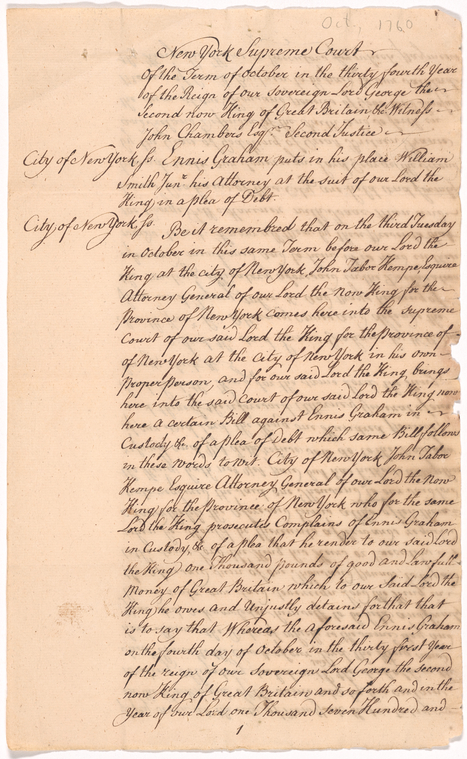 Oct, 1760
New York Supreme Court
Of the Term of October in the thirty fourth Year
of the Reign of our Sovereign Lord George the
Second now King of Great Britain &c Witness
John Chambers Esqr. Second Justice
City of New York ss. Ennis Graham puts in his place William
Smith Junr. his Attorney at the suit of our Lord the
King in a plea of Debt.
City of New York ss. Be it remembred that on the third Tuesday
in October in this same Term before our Lord the
King at the City of New York John Tabor Kempe Esquire
Attorney General of our Lord the Now King for the
Province of New York comes here into the Supreme
Court of our said Lord the King for the Province of
of New York at the City of New York in his own
Proper person, and for our said Lord the King brings
here into the said Court of our said Lord the King now
here a certain Bill against Ennis Graham in
Custody &c. of a plea of Debt which same Bill follows
in these words to wit. City of New York John Tabor
Kempe Esquire Attorney General of our Lord the Now
King for the Province of New York who for the same
Lord the King prosecutes Complains of Ennis Graham
in Custody &c of a plea that he render to our said Lord
the King one Thousand pounds of good and Lawfull
Money of Great Britain which to our Said Lord the
King he owes and Unjustly detains for that that
is to say that Whereas the aforesaid Ennis Graham
on the fourth day of October in the thirty first Year
of the reign of our Sovereign Lord George the second
now King of Great Britain and so forth and in the
Year of Our Lord one Thousand Seven Hundred and
1